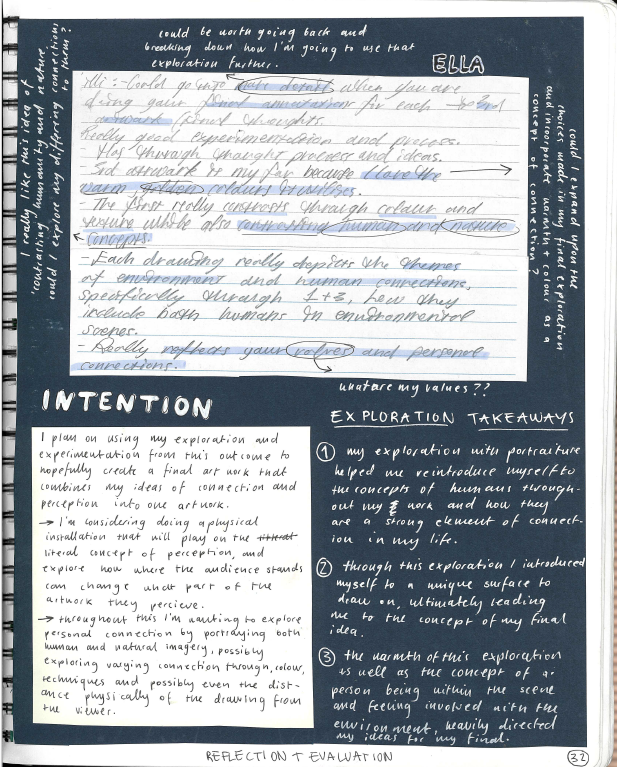 could be worth going back and
breaking down how I'm going to use that
exploration further.
ELLA
I really like this idea of
'contrasting humanity and nature,
could I explore my differing connections
to them?
could I expand upon the
choices made in my final exploration
and incorporate warmth + colour as a
concept of connection?
Hi :- Could go into more detail when you are
doing your final annotations for each → 3rd
artwork final thoughts.
Really good experimentation and process.
Has through thought process and ideas.
3rd artwork is my fav because I love the
warm golden colours it utilises.
- The first really contrasts through colour and
texture while also contrasting human and nature
concepts.
- Each drawing really depicts the themes
of environment and human connections,
specifically through 1+3, how they
include both humans in environmental
scenes.
- Really reflects your values and personal
connections.
what are my values??
INTENTION
I plan on using my exploration and
experimentation from this outcome to
hopefully create a final art work that
combines my ideas of connection and
perception into one artwork.
→ I'm considering doing a physical
installation that will play on the literal
literal concept of perception, and
explore how where the audience stands
can change what part of the
artwork they percieve.
→ throughout this I'm wanting to explore
personal connection by portraying both
human and natural imagery, possibly
exploring varying connection through, colour,
techniques and possibly even the dist-
ance physically of the drawing from
the viewer.
EXPLORATION TAKEAWAYS
① my exploration with portraiture
helped me reintroduce myself to
the concepts of humans through-
out my work and how they
are a strong element of connect-
ion in my life.
② through this exploration I introduced
myself to a unique surface to
draw on, ultimately leading
me to the concept of my final
idea.
③ the warmth of this exploration
as well as the concept of a
person being within the scene
and feeling involved with the
environment, heavily directed
my ideas for my final.
REFLECTION + EVALUATION
32